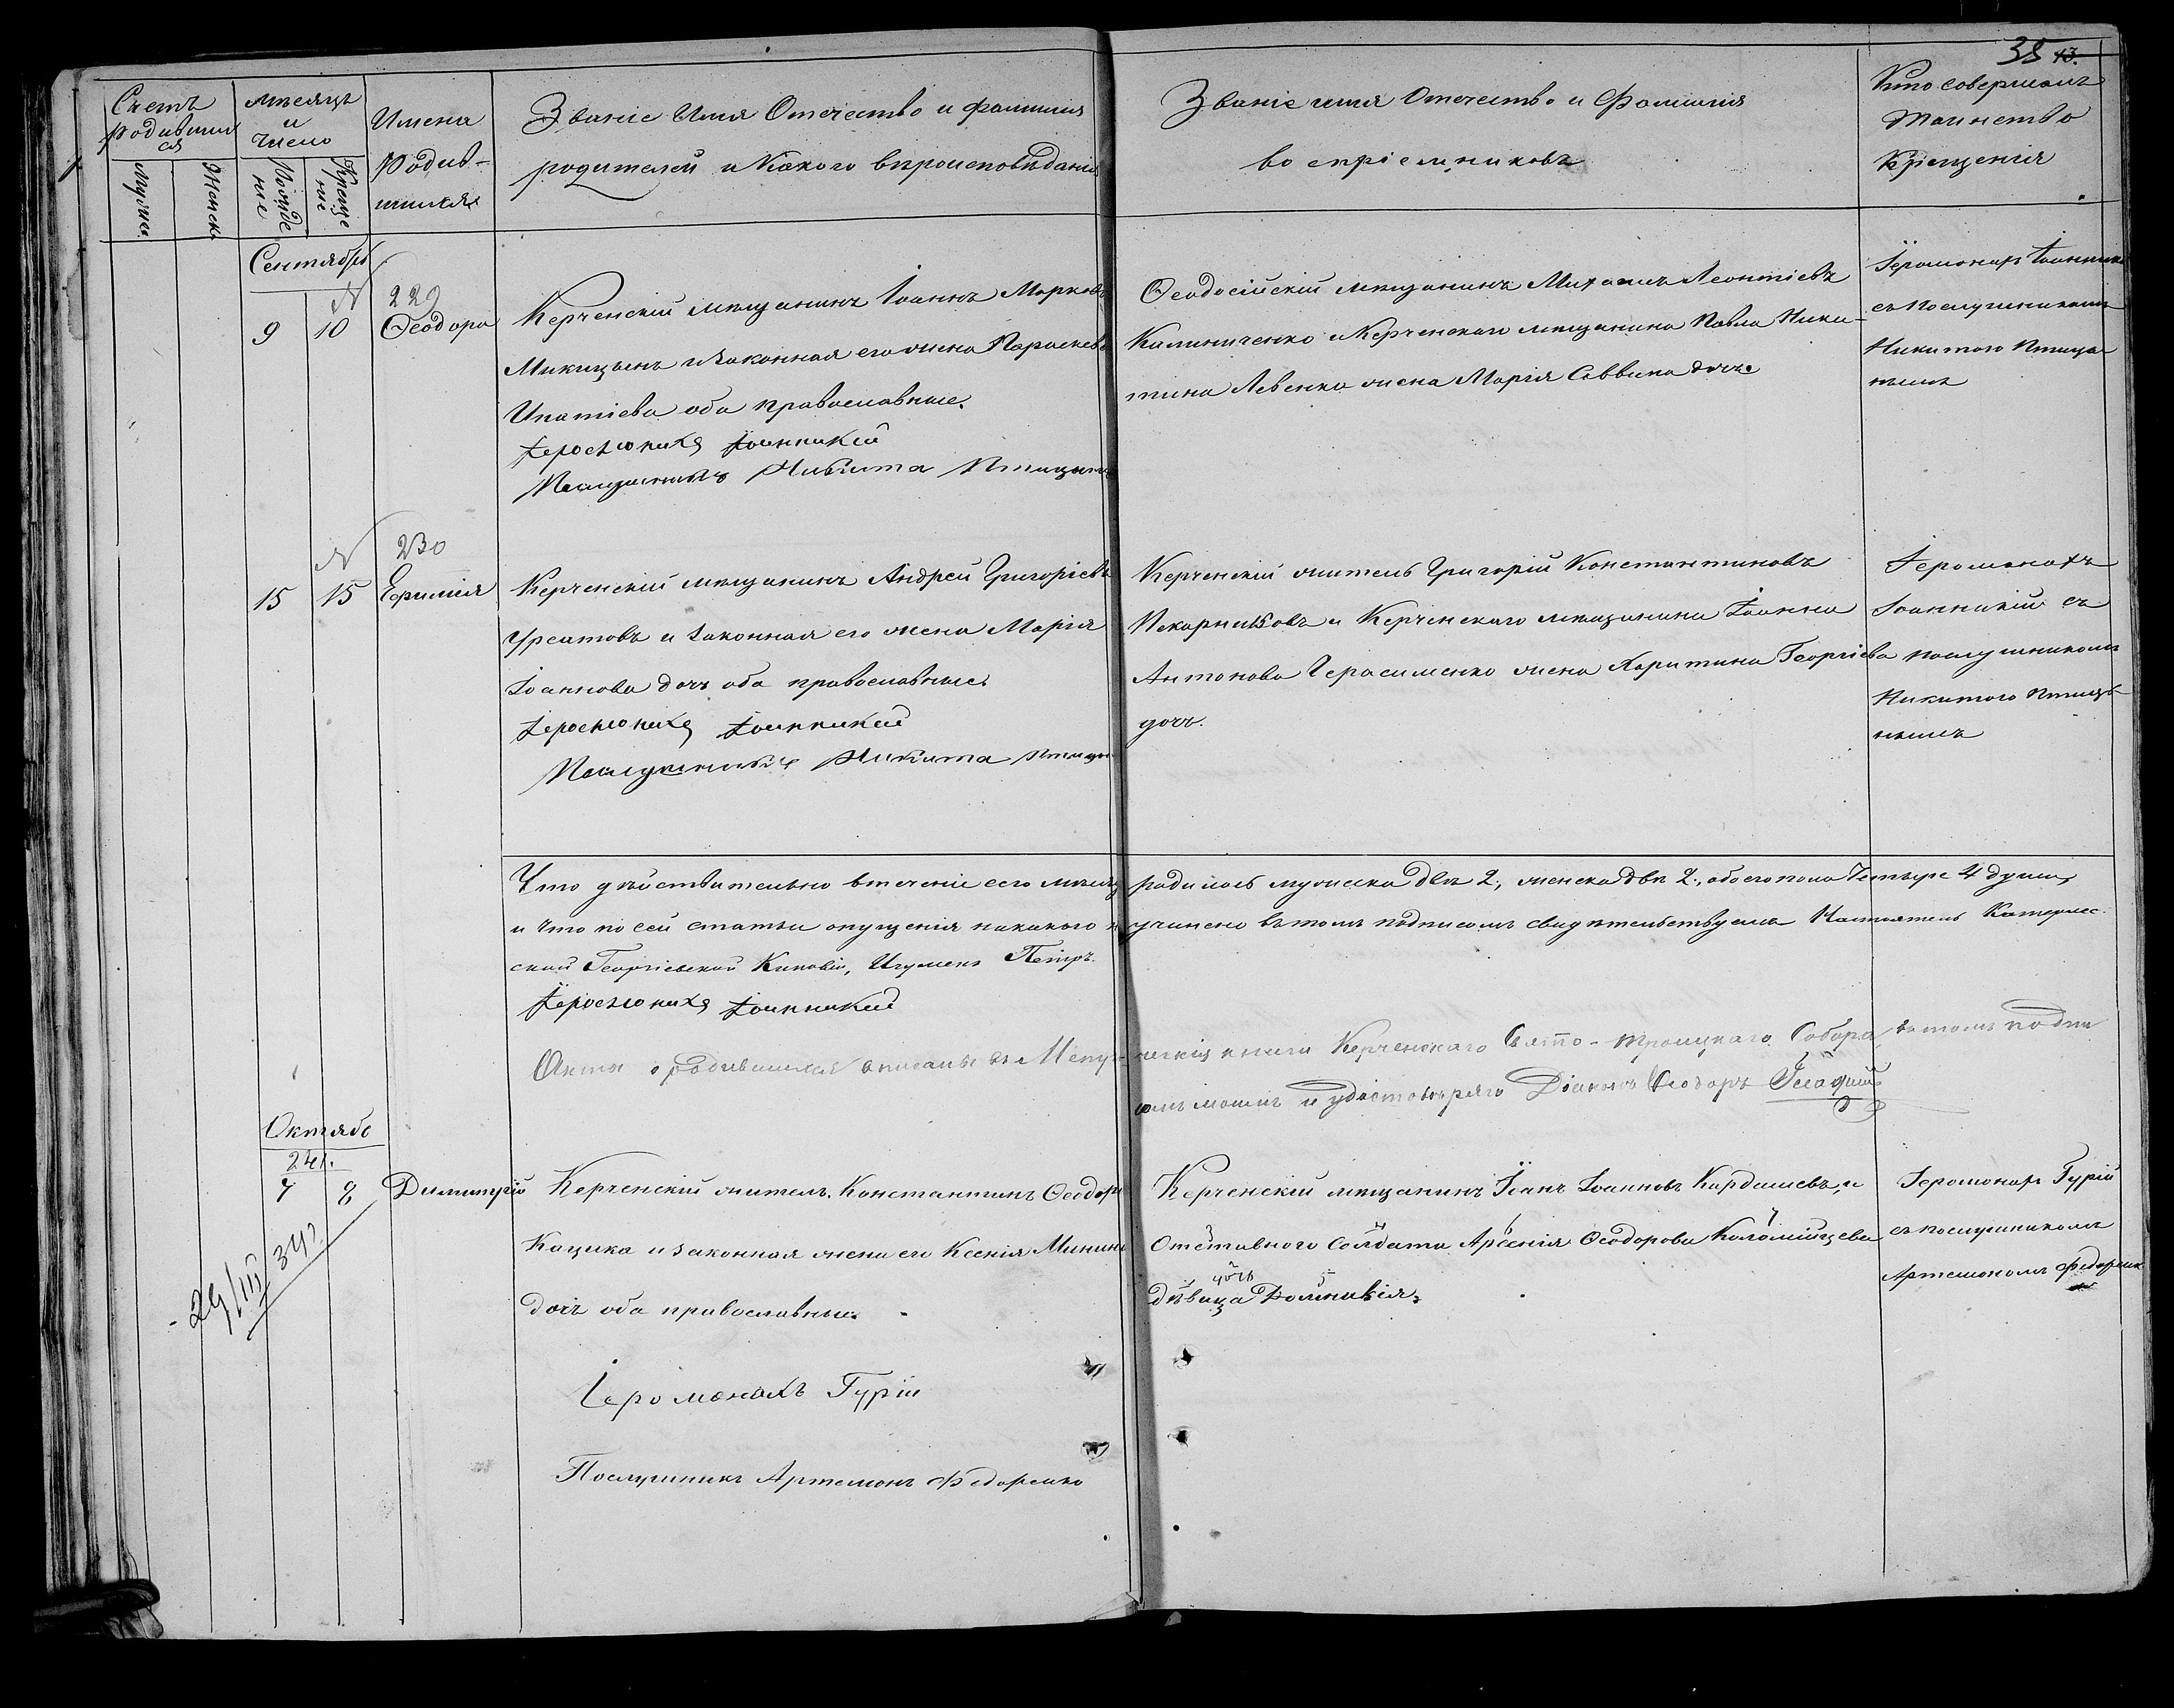 38 43.
Счетъ родившихся
Мужес. Женск.
мѣсяцъ и число
Рожденіе Крещеніе
Имена Родившихся
Званіе Имя Отечество и фамилія
родителей и Какого вѣроисповѣданія
Званіе имя Отечество и Фамилія
воспріемниковъ
Кто совершалъ
Таинство
Крещенія
Сентябрь
N 229
9 10 Ѳеодора
Керченскій мѣщанинъ Іоаннъ Марковъ
и законная его жена Параскева
Ипатіева оба православные.
Іеромонахъ Іоанникій
Послушникъ Никита Птицынъ
Ѳеодосійскій мѣщанинъ Михаилъ Леонтіевъ
Калиниченко и Керченскаго мѣщанина Павла Ники-
тина Левенка жена Марія Саввина дочь
Іеромонахъ Іоанникій
съ послушникомъ
Никитою Птицы-
нымъ
N 230
15 15 Ефимія
Керченскій мѣщанинъ Андрей Григоріевъ
и законная его жена Марія
Іоаннова дочь оба православные.
Іеромонахъ Іоанникій
Послушникъ Никита Птицынъ
Керченскій житель Григорій Константиновъ
Пекарниковъ и Керченскаго мѣщанина Іоанна
Антонова Герасименко жена Харитина Георгіева
дочь.
Іеромонахъ
Іоанникій съ
послушникомъ
Никитою Птицы-
нымъ
Что дѣйствительно втеченіе сего мѣсяца родилось мужеска двѣ 2, женска двѣ 2, обоего пола Четыре 4 души,
и что по сей статьи опущенія никакого не учинено въ томъ подписомъ свидѣтельствуемъ Настоятель Катерлес-
ской Георгіевской Киновіи, Игуменъ Петръ.
Іеромонахъ Іоанникій
Акты о родившихся вписаны въ Метрическія книги Керченскаго Свято-Троицкаго Собора, въ томъ подпи
сомъ моимъ и удостовѣряю Діаконъ Ѳеодоръ
Октябр
241.
7 8 Димитрій
29/III 342
Керченскій житель Константинъ Ѳеодоровъ
Кацика и законная жена его Ксенія Минина
дочь оба православные.
Іеромонахъ Гурій
Послушникъ Артемонъ Федоренко
Керченскій мѣщанинъ Іоанъ Іоанновъ Кардашевъ, и
Отставного Солдата Арсенія Ѳеодорова Коломійцева
дочь
дѣвица Домникія.
Іеромонахъ Гурій
съ послушникомъ
Артемономъ Федоренк